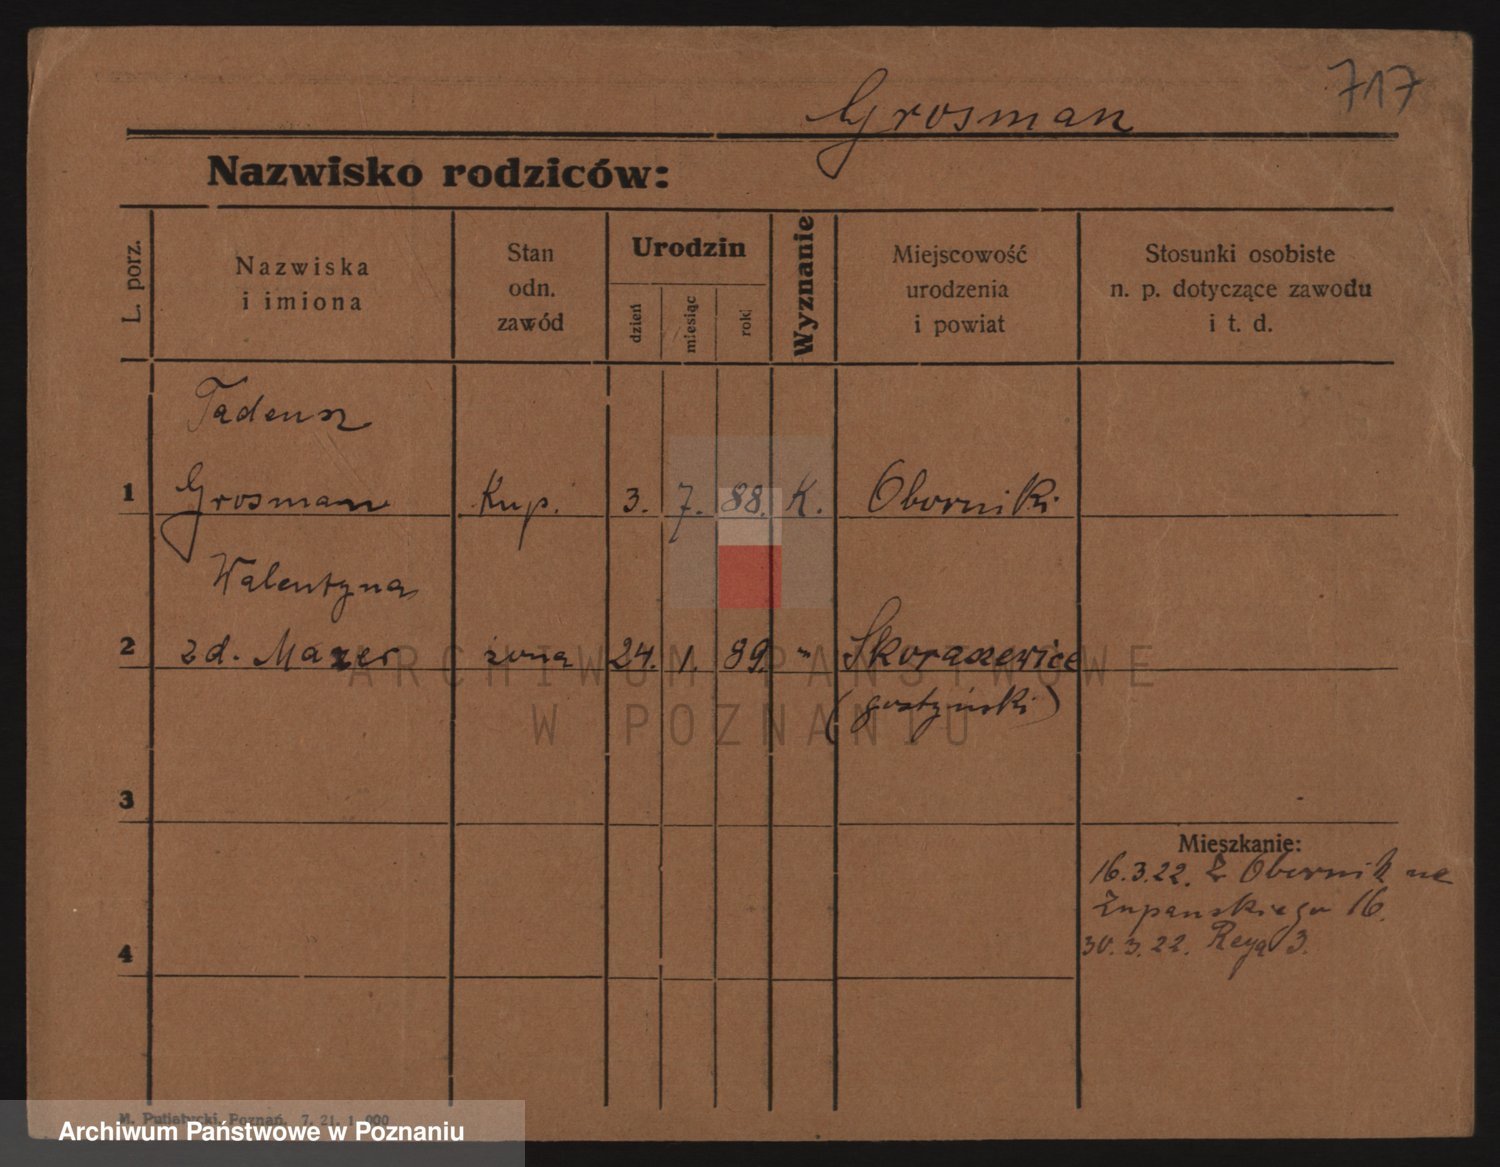 717
Grosman
Nazwisko rodziców:
L. porz.
Nazwiska
i imiona
Stan
odn.
zawód
Urodzin
dzień
miesiąc
rok
Wyznanie
Miejscowość
urodzenia
i powiat
Stosunki osobiste
n. p. dotyczące zawodu
i t. d.
Tadeusz
1 Grosman Kup. 3. 7. 88. K. Oborniki
Walentyna
2 zd. Mazer żona 24. 1. 89. " Skoraszewice
(gostyński)
3
Mieszkanie:
16.3.22. Z Obornik na
Żupańskiego 16.
30.3.22. Reya 3.
4
M. Putiatycki, Poznań. 7. 21. 1 000
ARCHIWUM PAŃSTWOWE
W POZNANIU
Archiwum Państwowe w Poznaniu